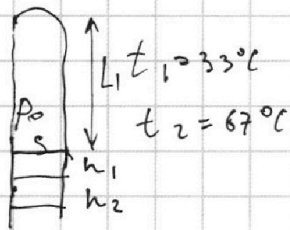 L₁ t₁ = 33°C
t₂ = 67°C
P₀
S
h₁
h₂